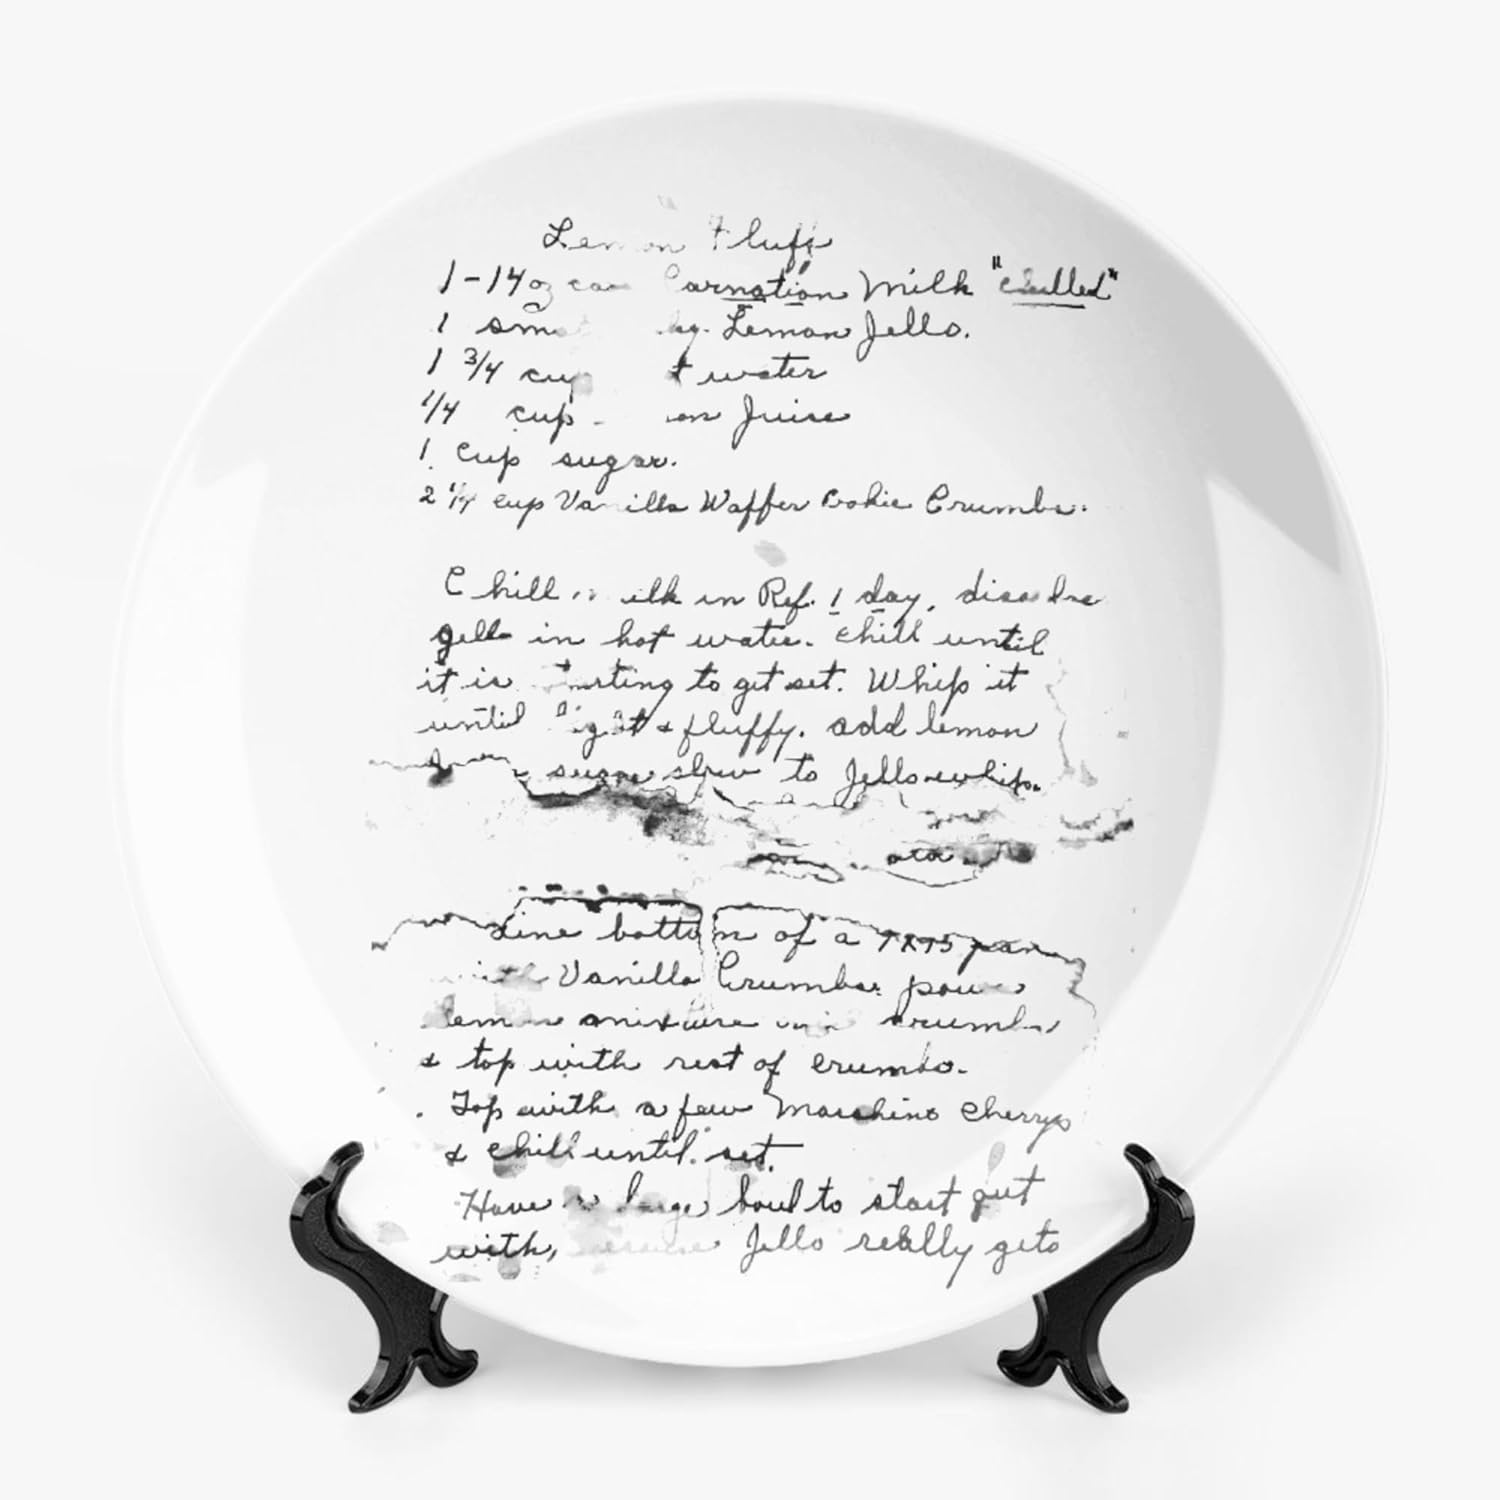 Lemon Fluff
1-14oz can Carnation Milk "chilled"
1 small pkg. Lemon Jello.
1 3/4 cup water
1/4 cup - Juice
1 cup sugar.
2 1/4 cup Vanilla Waffer Cookie Crumbs.
Chill milk in Ref. 1 day, dissolve
gello in hot water. Chill until
it is starting to get set. Whip it
until light & fluffy. add lemon
sugar slow to Jello whip.
Line bottom of a pan
with Vanilla Crumbs. pour
lemon mixture crumbs
& top with rest of crumbs.
Top with a few Marachino Cherrys
& chill until set.
Have large bowl to start out
with, Jello really gets